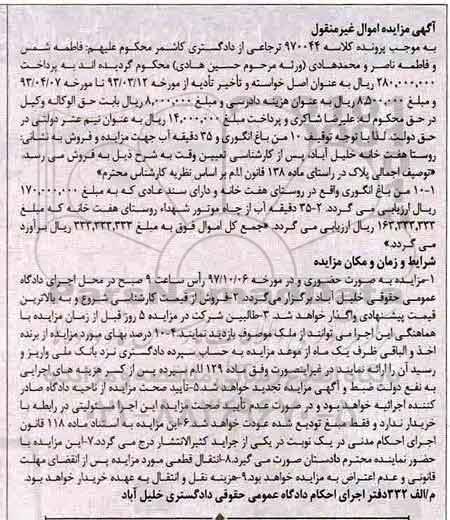 آگهی مزایده اموال غیرمنقول
به موجب پرونده کلاسه ۹۷۰۰۴۴ ترجاعی از دادگستری کاشمر محکوم علیهم: فاطمه شمس
و فاطمه ناصر و محمدهادی (ورثه مرحوم حسین هادی) محکوم گردیده اند به پرداخت
۲۸۰,۰۰۰,۰۰۰ ریال به عنوان اصل خواسته و تأخیر تأدیه از مورخه ۹۳/۰۳/۱۲ تا مورخه ۹۳/۰۴/۰۷
و مبلغ ۸,۵۰۰,۰۰۰ ریال به عنوان هزینه دادرسی و مبلغ ۸,۰۰۰,۰۰۰ ریال بابت حق الوکاله وکیل
در حق محکوم له: علیرضا شاکری و پرداخت مبلغ ۱۴,۰۰۰,۰۰۰ ریال به عنوان نیم عشر دولتی در
حق دولت. لذا با توجه توقیف ۱۰ من باغ انگوری و ۳۵ دقیقه آب جهت مزایده و فروش به نشانی:
روستا هفت خانه خلیل آباد، پس از کارشناسی تعیین وقت به شرح ذیل به فروش می رسد.
«توصیف اجمالی پلاک در راستای ماده ۱۳۸ قانون ا.ا.م بر اساس نظریه کارشناس محترم»
۱-۱۰ من باغ انگوری واقع در روستای هفت خانه و دارای سند عادی که به مبلغ ۱۷۰,۰۰۰,۰۰۰
ریال ارزیابی می گردد. ۲-۳۵ دقیقه آب از چاه موتور شهداء روستای هفت خانه که مبلغ
۱۶۳,۳۳۳,۳۳۳ ریال ارزیابی می گردد. «جمع کل اموال فوق به مبلغ ۳۳۳,۳۳۳,۳۳۳ ریال برآورد
می گردد.»
شرایط و زمان و مکان مزایده
۱-مزایده به صورت حضوری و در مورخه ۹۷/۱۰/۰۶ رأس ساعت ۹ صبح در محل اجرای دادگاه
عمومی حقوقی خلیل آباد برگزار می‌گردد. ۲-فروش از قیمت کارشناسی شروع و به بالاترین
قیمت پیشنهادی واگذار خواهد شد. ۳-طالبین شرکت در مزایده ۵ روز قبل از زمان مزایده با
هماهنگی این اجرا می توانند از ملک موصوف بازدید نمایند. ۴-۱۰ درصد بهای مورد مزایده از برنده
اخذ و الباقی ظرف یک ماه از موعد مزایده به حساب سپرده دادگستری نزد بانک ملی واریز و
رسید آن را ارائه نمایند در غیراینصورت وفق ماده ۱۲۹ ا.ا.م سپرده پس از کسر هزینه های اجرایی
به نفع دولت ضبط و آگهی مزایده تجدید خواهد شد. ۵-تأیید صحت مزایده از ناحیه دادگاه صادر
کننده اجرائیه خواهد بود و در صورت عدم تأیید صحت مزایده این اجرا مسئولیتی در رابطه با
خریدار ندارد و فقط مبلغ تودیع شده عودت خواهد شد. ۶-این مزایده به استناد ماده ۱۱۸ قانون
اجرای احکام مدنی در یک نوبت در یکی از جراید کثیرالانتشار درج می گردد. ۷-این مزایده با
حضور نماینده محترم دادستان صورت می گیرد. ۸-انتقال قطعی مورد مزایده پس از انقضای مهلت
قانونی و عدم اعتراض به مزایده خواهد بود. ۹-هزینه نقل و انتقال به عهده خریدار خواهد بود.
م/الف ۳۳۲ دفتر اجرای احکام دادگاه عمومی حقوقی دادگستری خلیل آباد